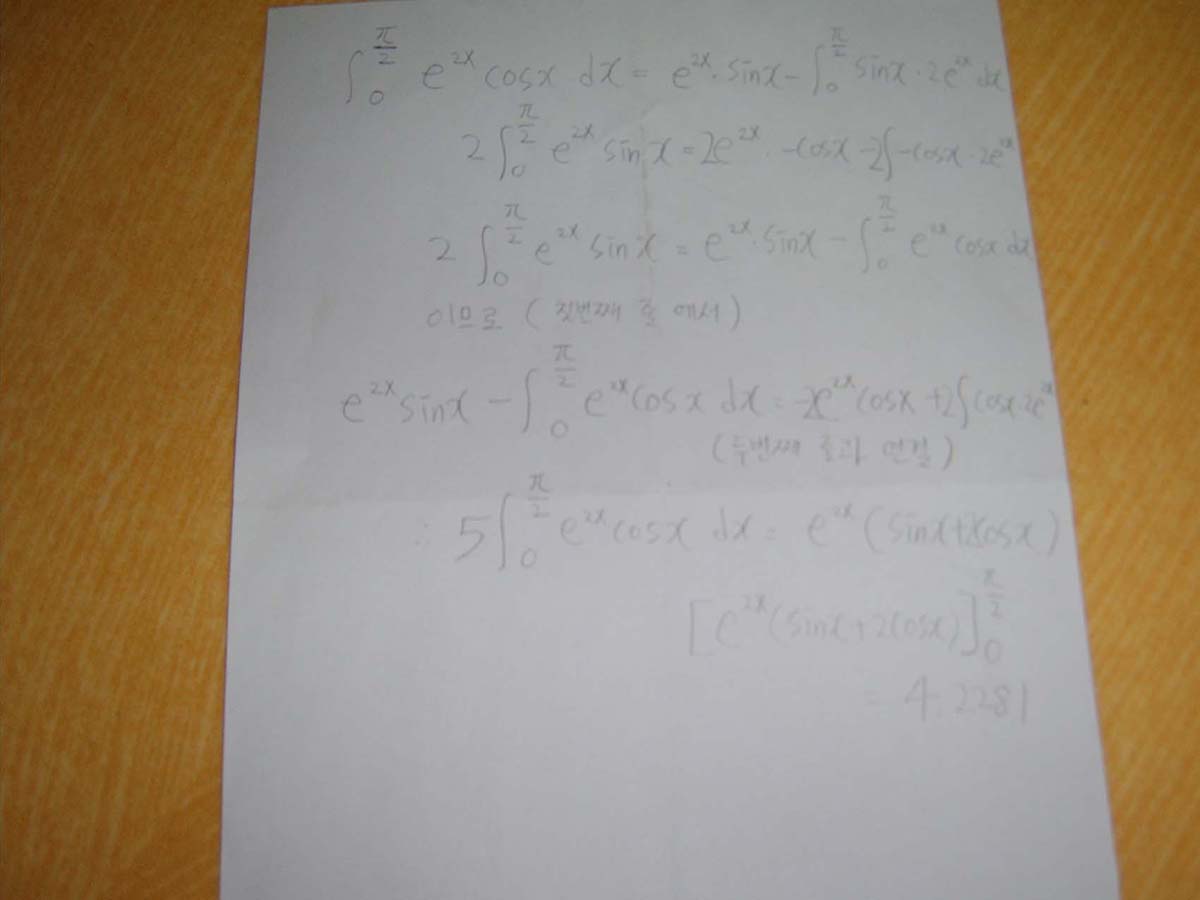 ∫₀^(π/2) e^(2x) cosx dx = e^(2x)·sinx - ∫₀^(π/2) sinx·2e^(2x) dx
2∫₀^(π/2) e^(2x) sin x = 2e^(2x)·-cosx -2∫-cosx·2e^(2x)
2∫₀^(π/2) e^(2x) sinx = e^(2x)·sinx - ∫₀^(π/2) e^(2x) cosx dx
이므로 (첫번째 줄 에서)
e^(2x) sinx - ∫₀^(π/2) e^(2x) cosx dx = -2e^(2x) cosx +2∫cosx·2e^(2x)
(두번째 줄과 연결)
∴ 5∫₀^(π/2) e^(2x) cosx dx = e^(2x) (sinx+2cosx)
[e^(2x)(sinx+2cosx)]₀^(π/2)
= 4.2281